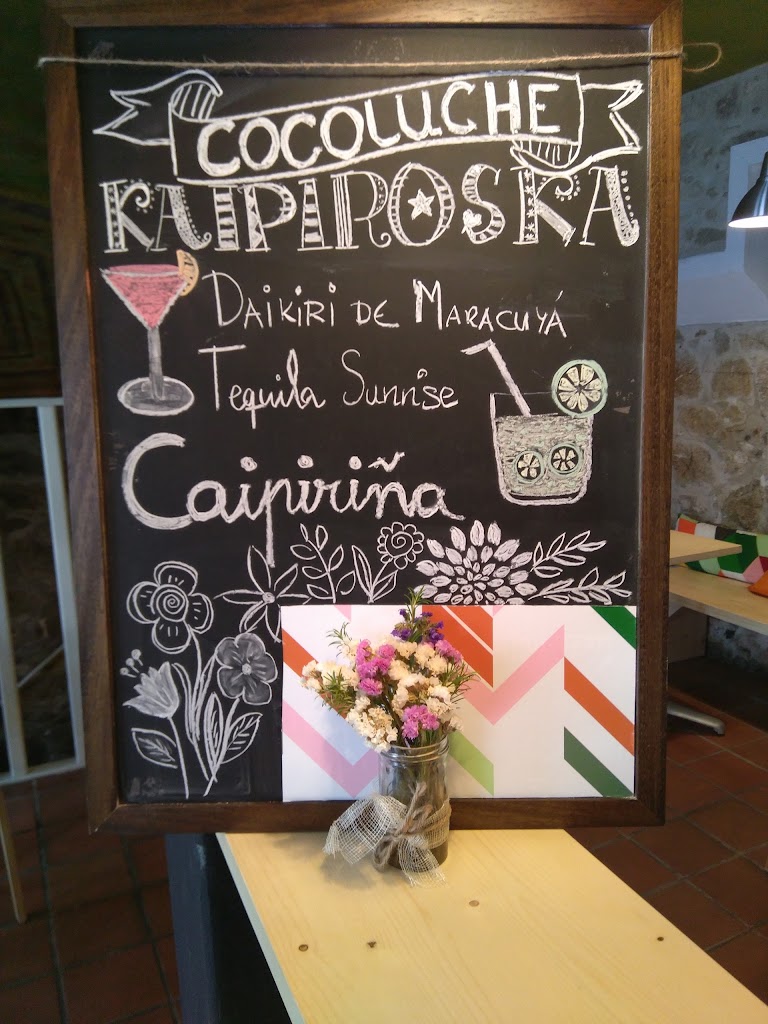 COCOLUCHE
KAIPIROSKA
DAIKIRI DE MARACUYÁ
Tequila Sunrise
Caipiriña